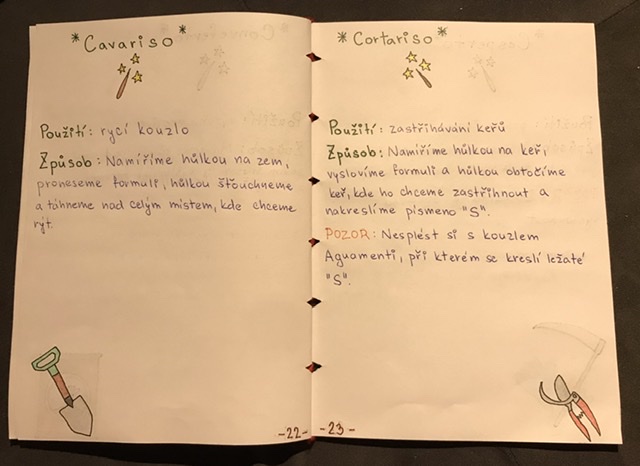 * Cavariso *
Použití: rycí kouzlo
Způsob: Namíříme hůlkou na zem,
proneseme formuli, hůlkou šťouchneme
a táhneme nad celým místem, kde chceme
rýt.
-22-
* Cortariso *
Použití: zastřihávání keřů
Způsob: Namíříme hůlkou na keř,
vyslovíme formuli a hůlkou obtočíme
keř, kde ho chceme zastřihnout a
nakreslíme písmeno "S".
POZOR: Nesplést si s kouzlem
Aguamenti, při kterém se kreslí ležaté
"S".
-23-